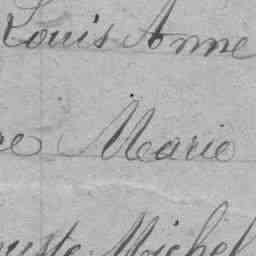 Louis Anne
re Marie
uste Michel